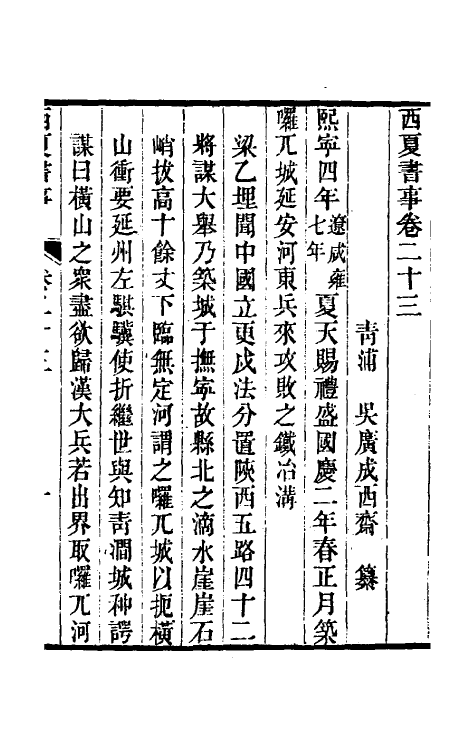 西夏書事卷二十三
青浦 吳廣成西齋 纂
熙寧四年遼咸雍七年夏天賜禮盛國慶二年春正月築
囉兀城延安河東兵來攻敗之鐵冶溝
梁乙埋聞中國立更戍法分置陝西五路四十二
將謀大舉乃築城于撫寧故縣北之滴水崖崖石
峭拔高十餘丈下臨無定河謂之囉兀城以扼橫
山衝要延州左騏驥使折繼世與知青澗城种諤
謀曰橫山之衆盡欲歸漢大兵若出界取囉兀河
西夏書事 卷二十三 一